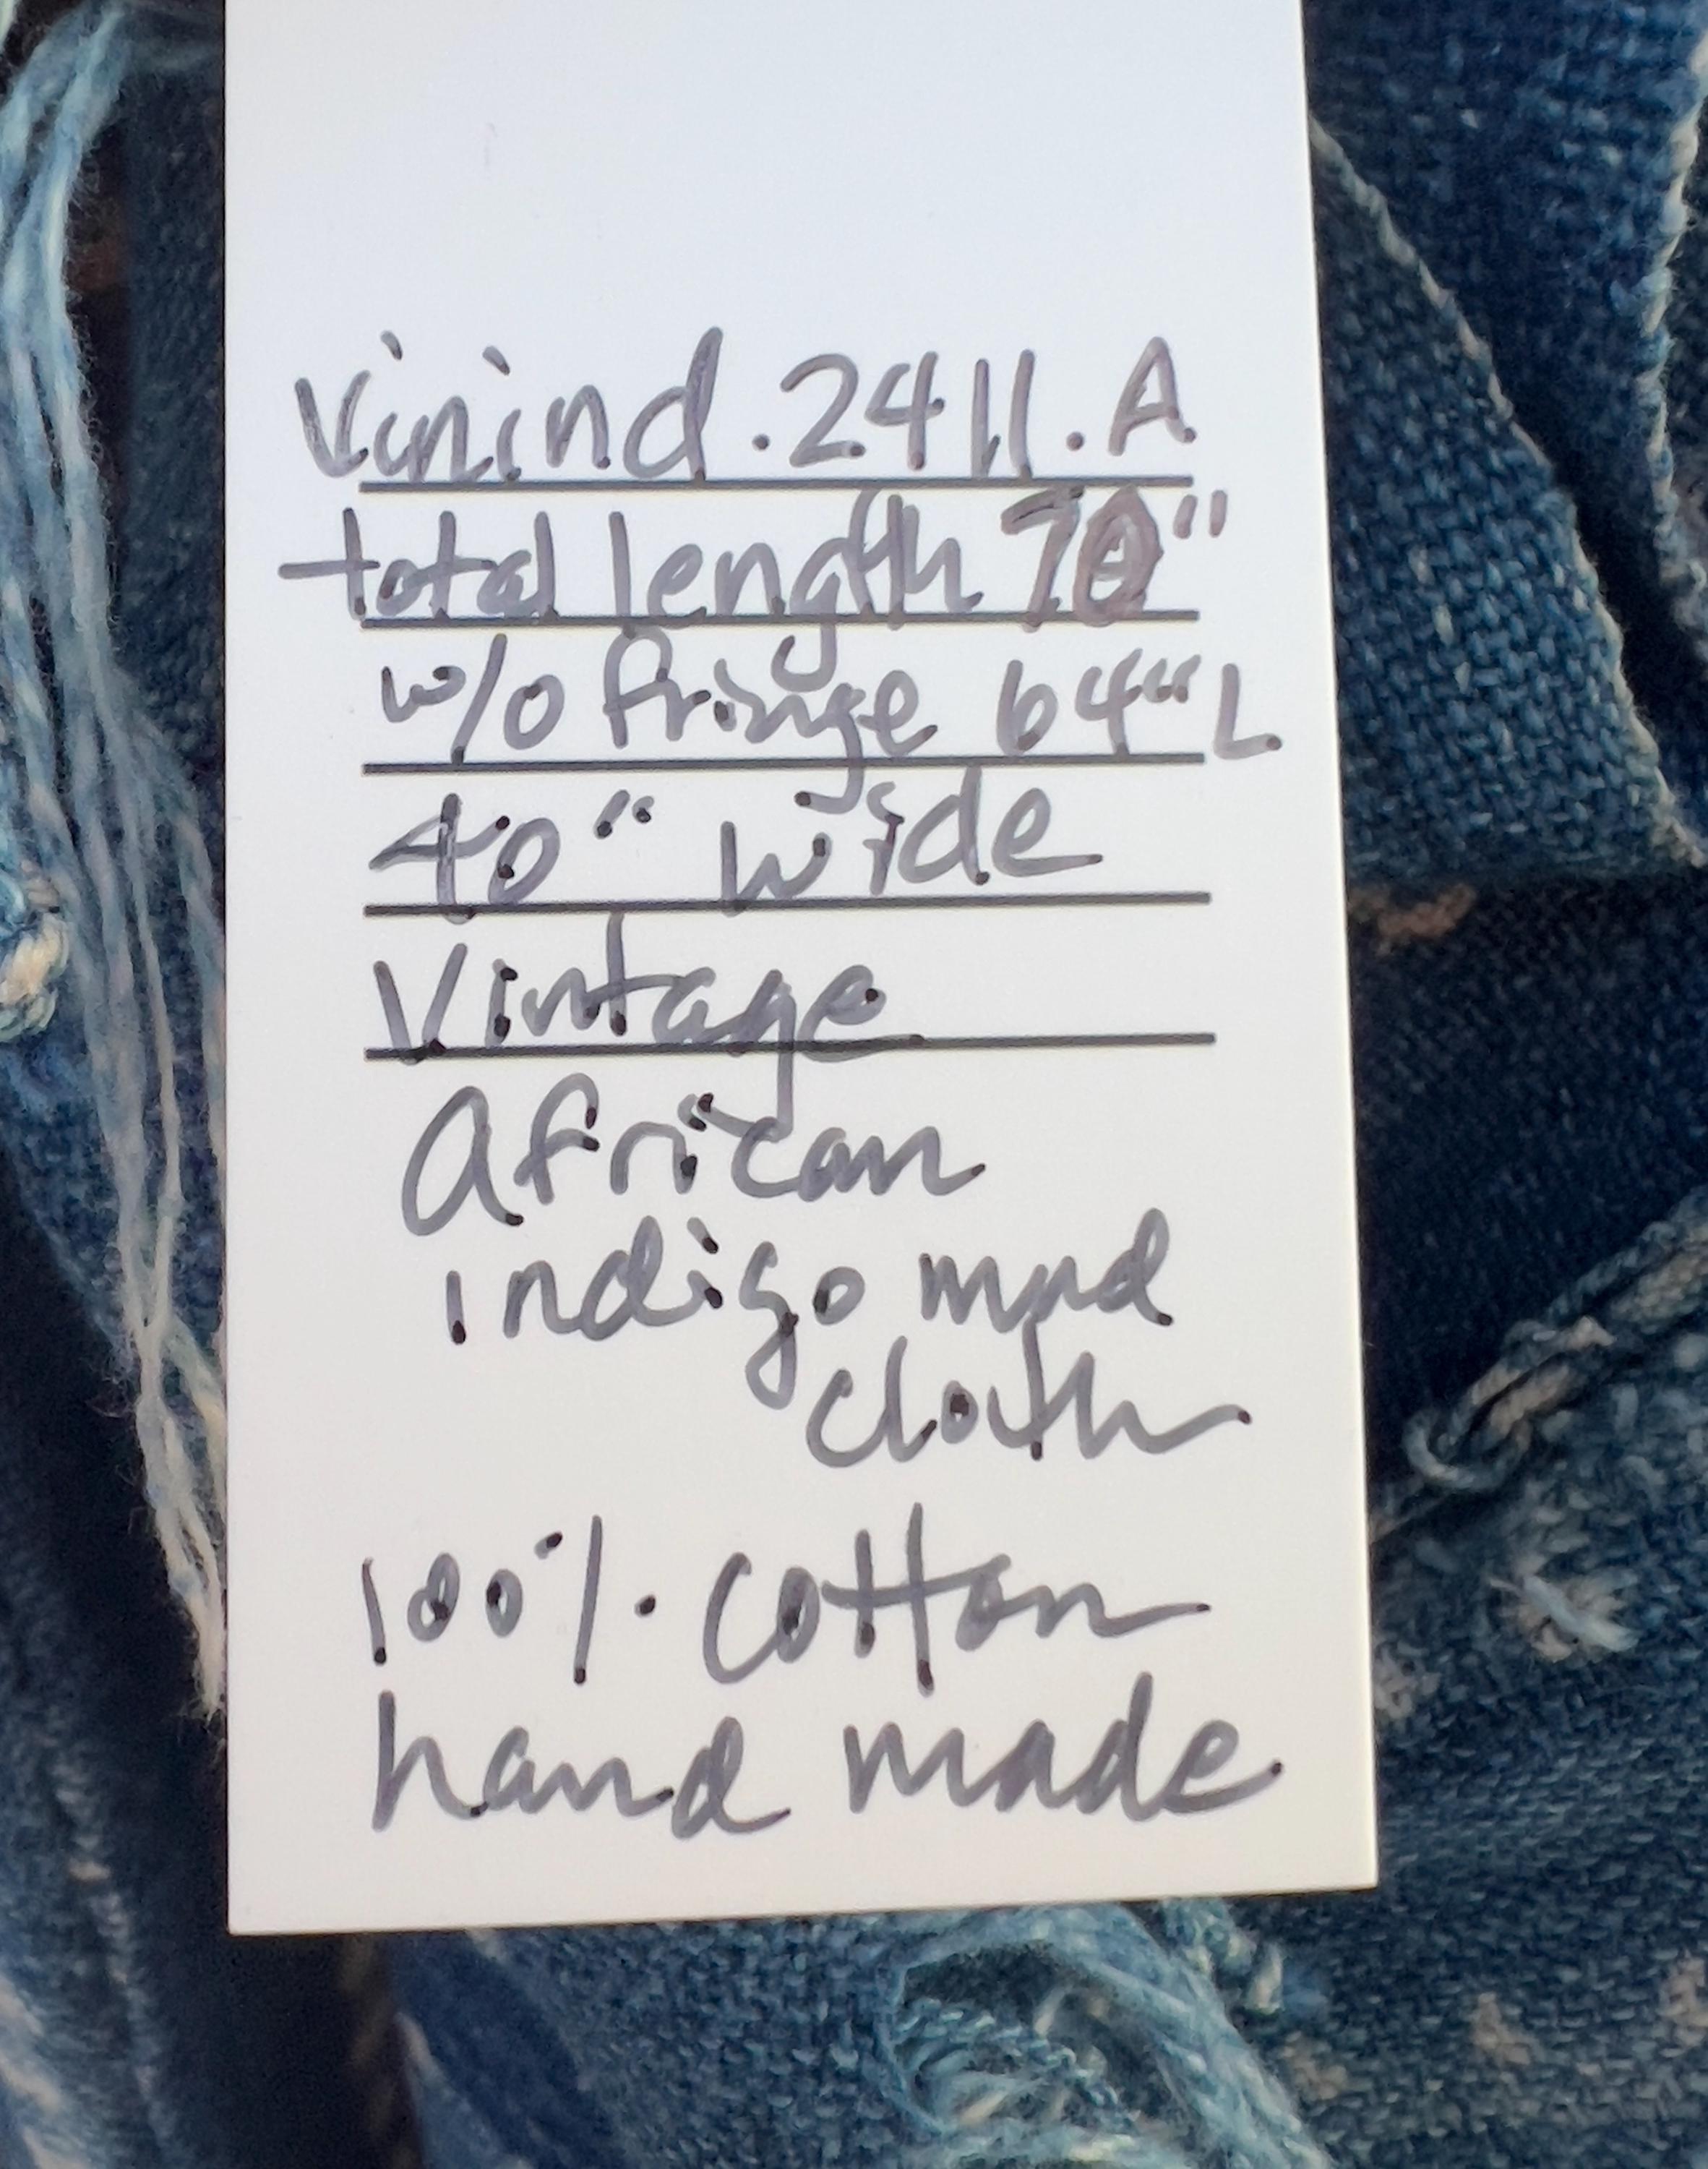 Vinind.2411.A
total length 70"
w/o fringe 64" L
40" wide
Vintage
African
indigo mud
cloth
100% cotton
hand made